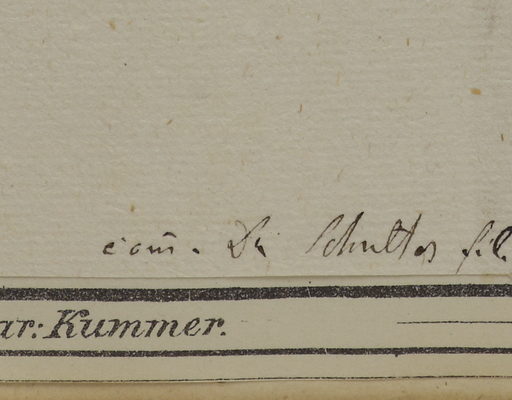 com̄. Dr Schultes fil.
ar: Kummer.